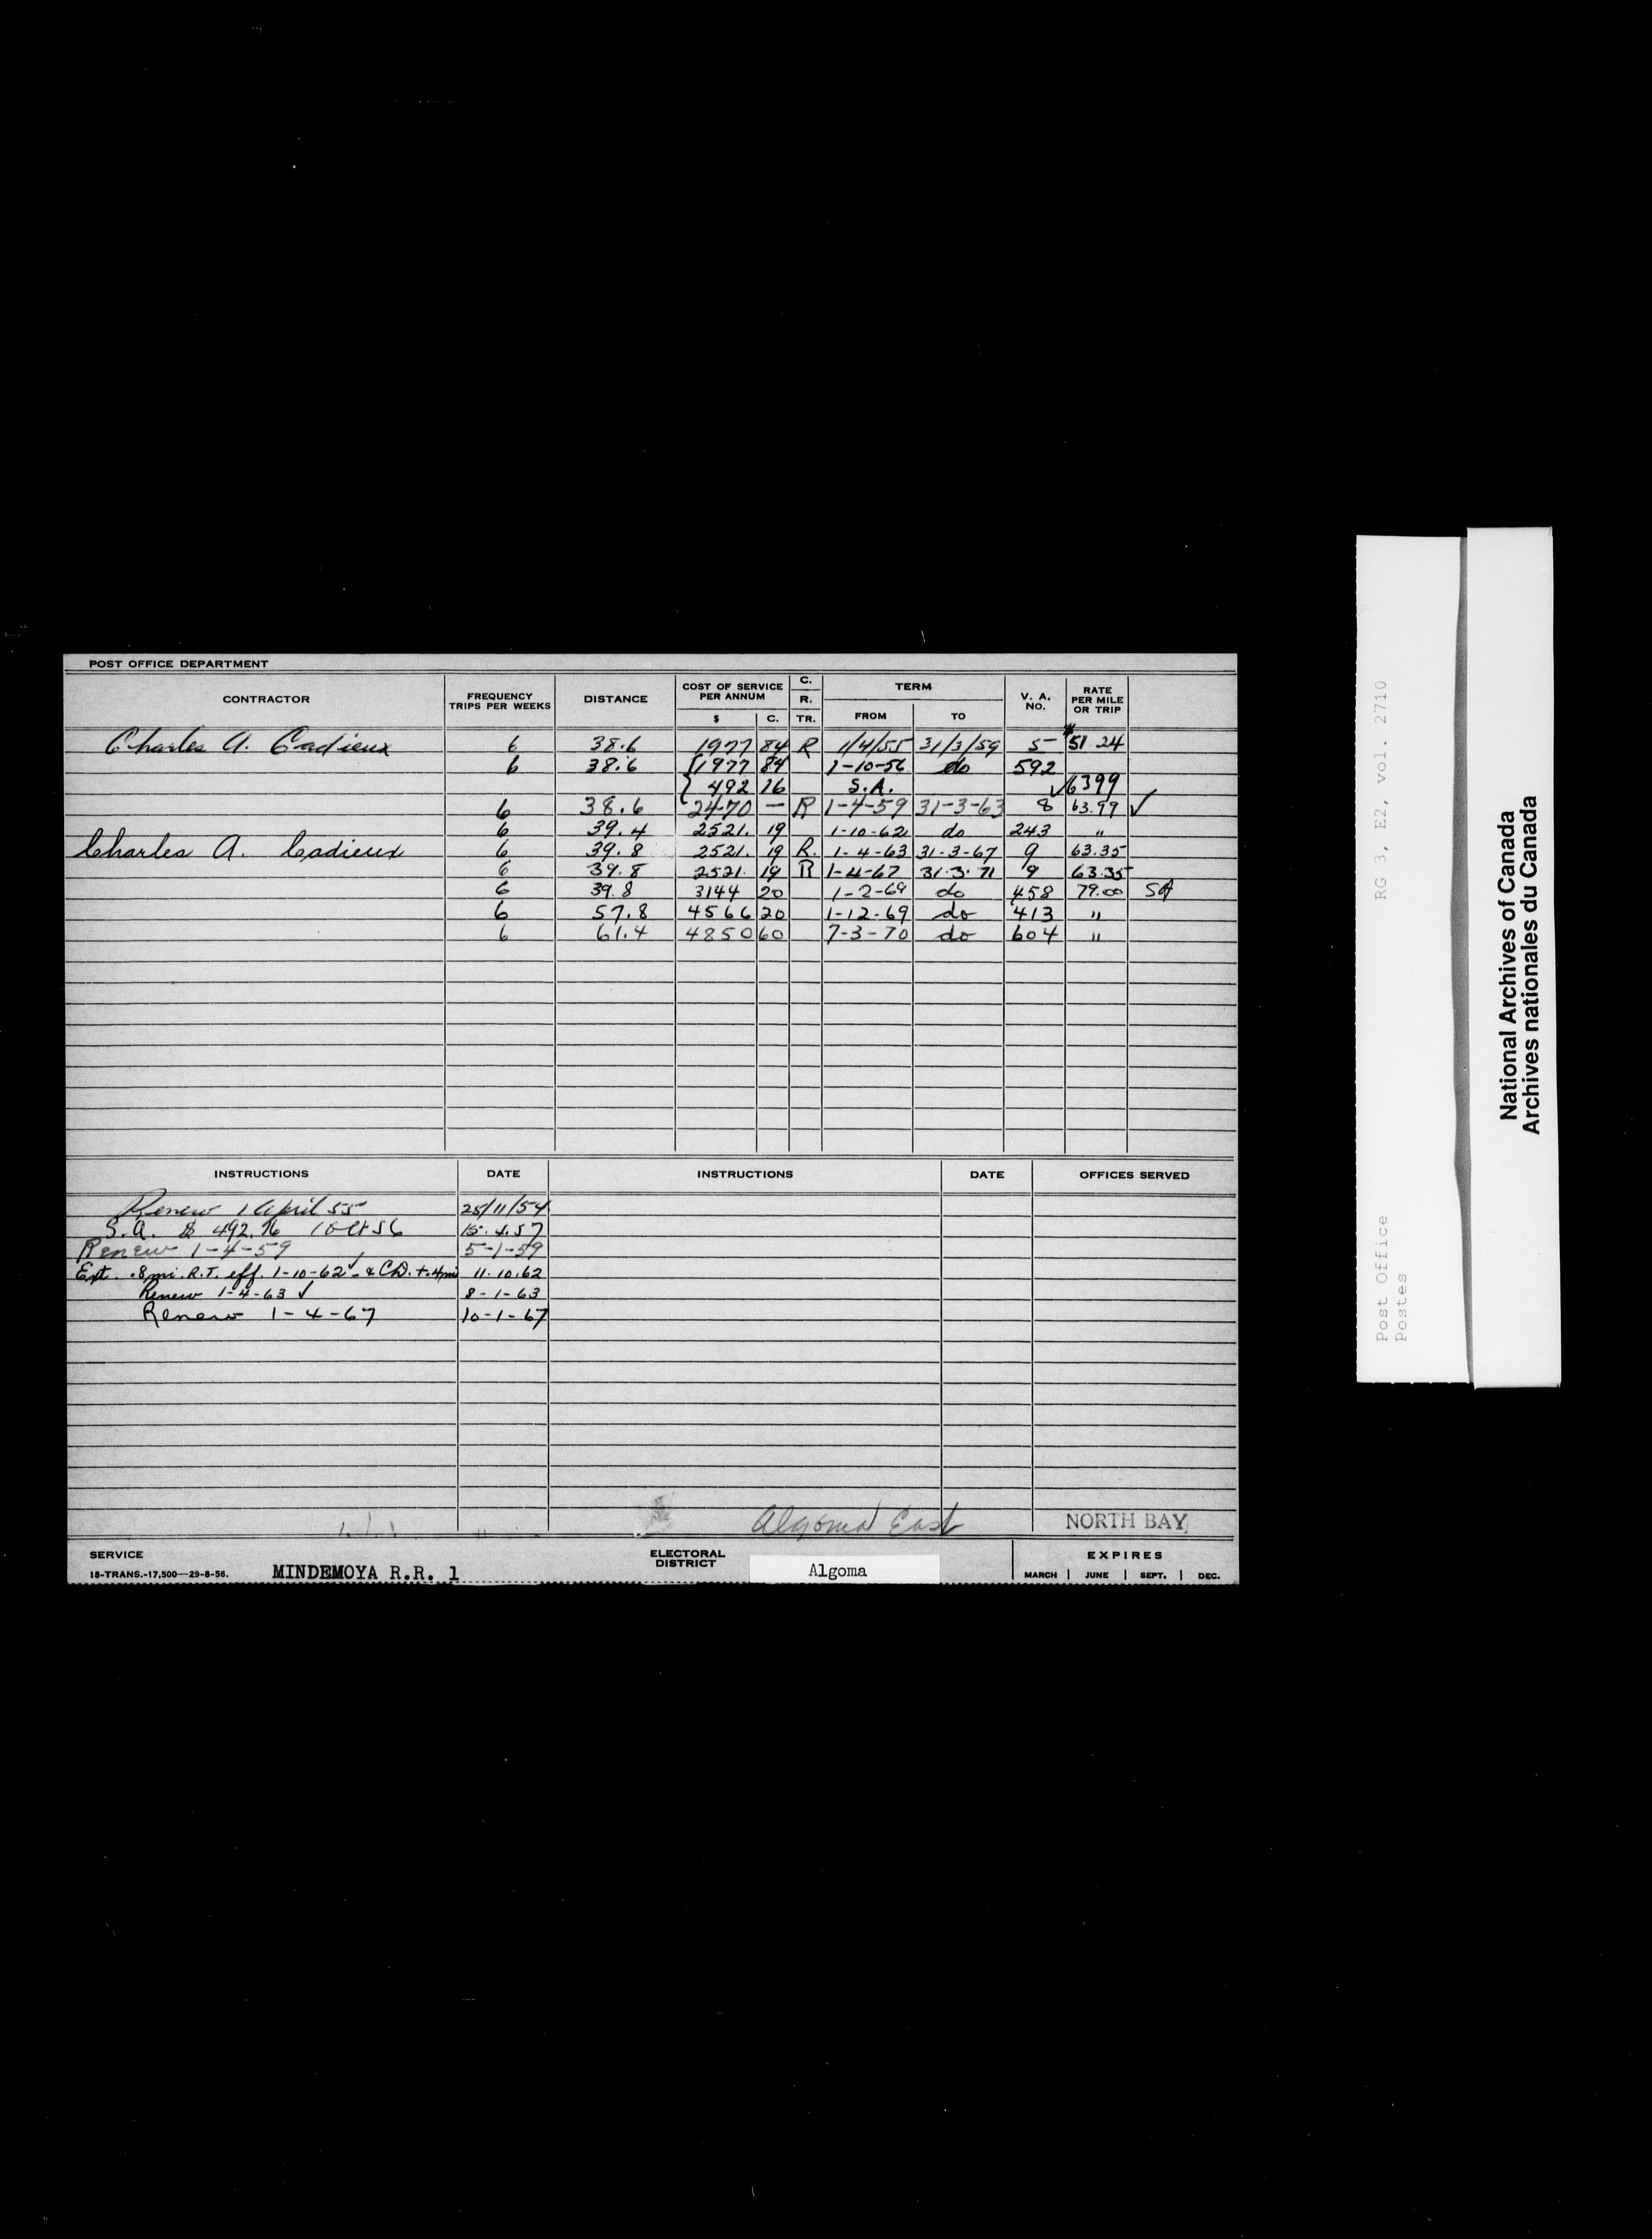 POST OFFICE DEPARTMENT
CONTRACTOR FREQUENCY TRIPS PER WEEKS DISTANCE COST OF SERVICE PER ANNUM $ C. C. R. TR. TERM FROM TO V. A. NO. RATE PER MILE OR TRIP
Charles A. Cadieux 6 38.6 1977 84 R 1/4/55 31/3/59 5 $51.24
6 38.6 {1977 84 1-10-56 do 592
492 16 S.A. ✓6399
6 38.6 2470 — R 1-4-59 31-3-63 8 63.99 ✓
6 39.4 2521. 19 1-10-62 do 243 "
Charles A. Cadieux 6 39.8 2521. 19 R. 1-4-63 31-3-67 9 63.35
6 39.8 2521. 19 R 1-4-67 31.3.71 9 63.35
6 39.8 3144 20 1-2-69 do 458 79.00 SA
6 57.8 4566 20 1-12-69 do 413 "
6 61.4 4850 60 7-3-70 do 604 "
INSTRUCTIONS DATE INSTRUCTIONS DATE OFFICES SERVED
Renew 1 April 55 25/11/54
S.A. $ 492.16 1 Oct 56 15.4.57
Renew 1-4-59 5-1-59
Ext. .8 mi. R.T. eff. 1-10-62 ✓ - & C.D. +.4mi 11.10.62
Renew 1-4-63 ✓ 8-1-63
Renew 1-4-67 10-1-67
Algoma East NORTH BAY
SERVICE MINDEMOYA R.R. 1 ELECTORAL DISTRICT Algoma EXPIRES
18-TRANS.-17,500—29-8-56. MARCH | JUNE | SEPT. | DEC.
RG 3, E2, vol. 2710
Post Office
Postes
National Archives of Canada
Archives nationales du Canada